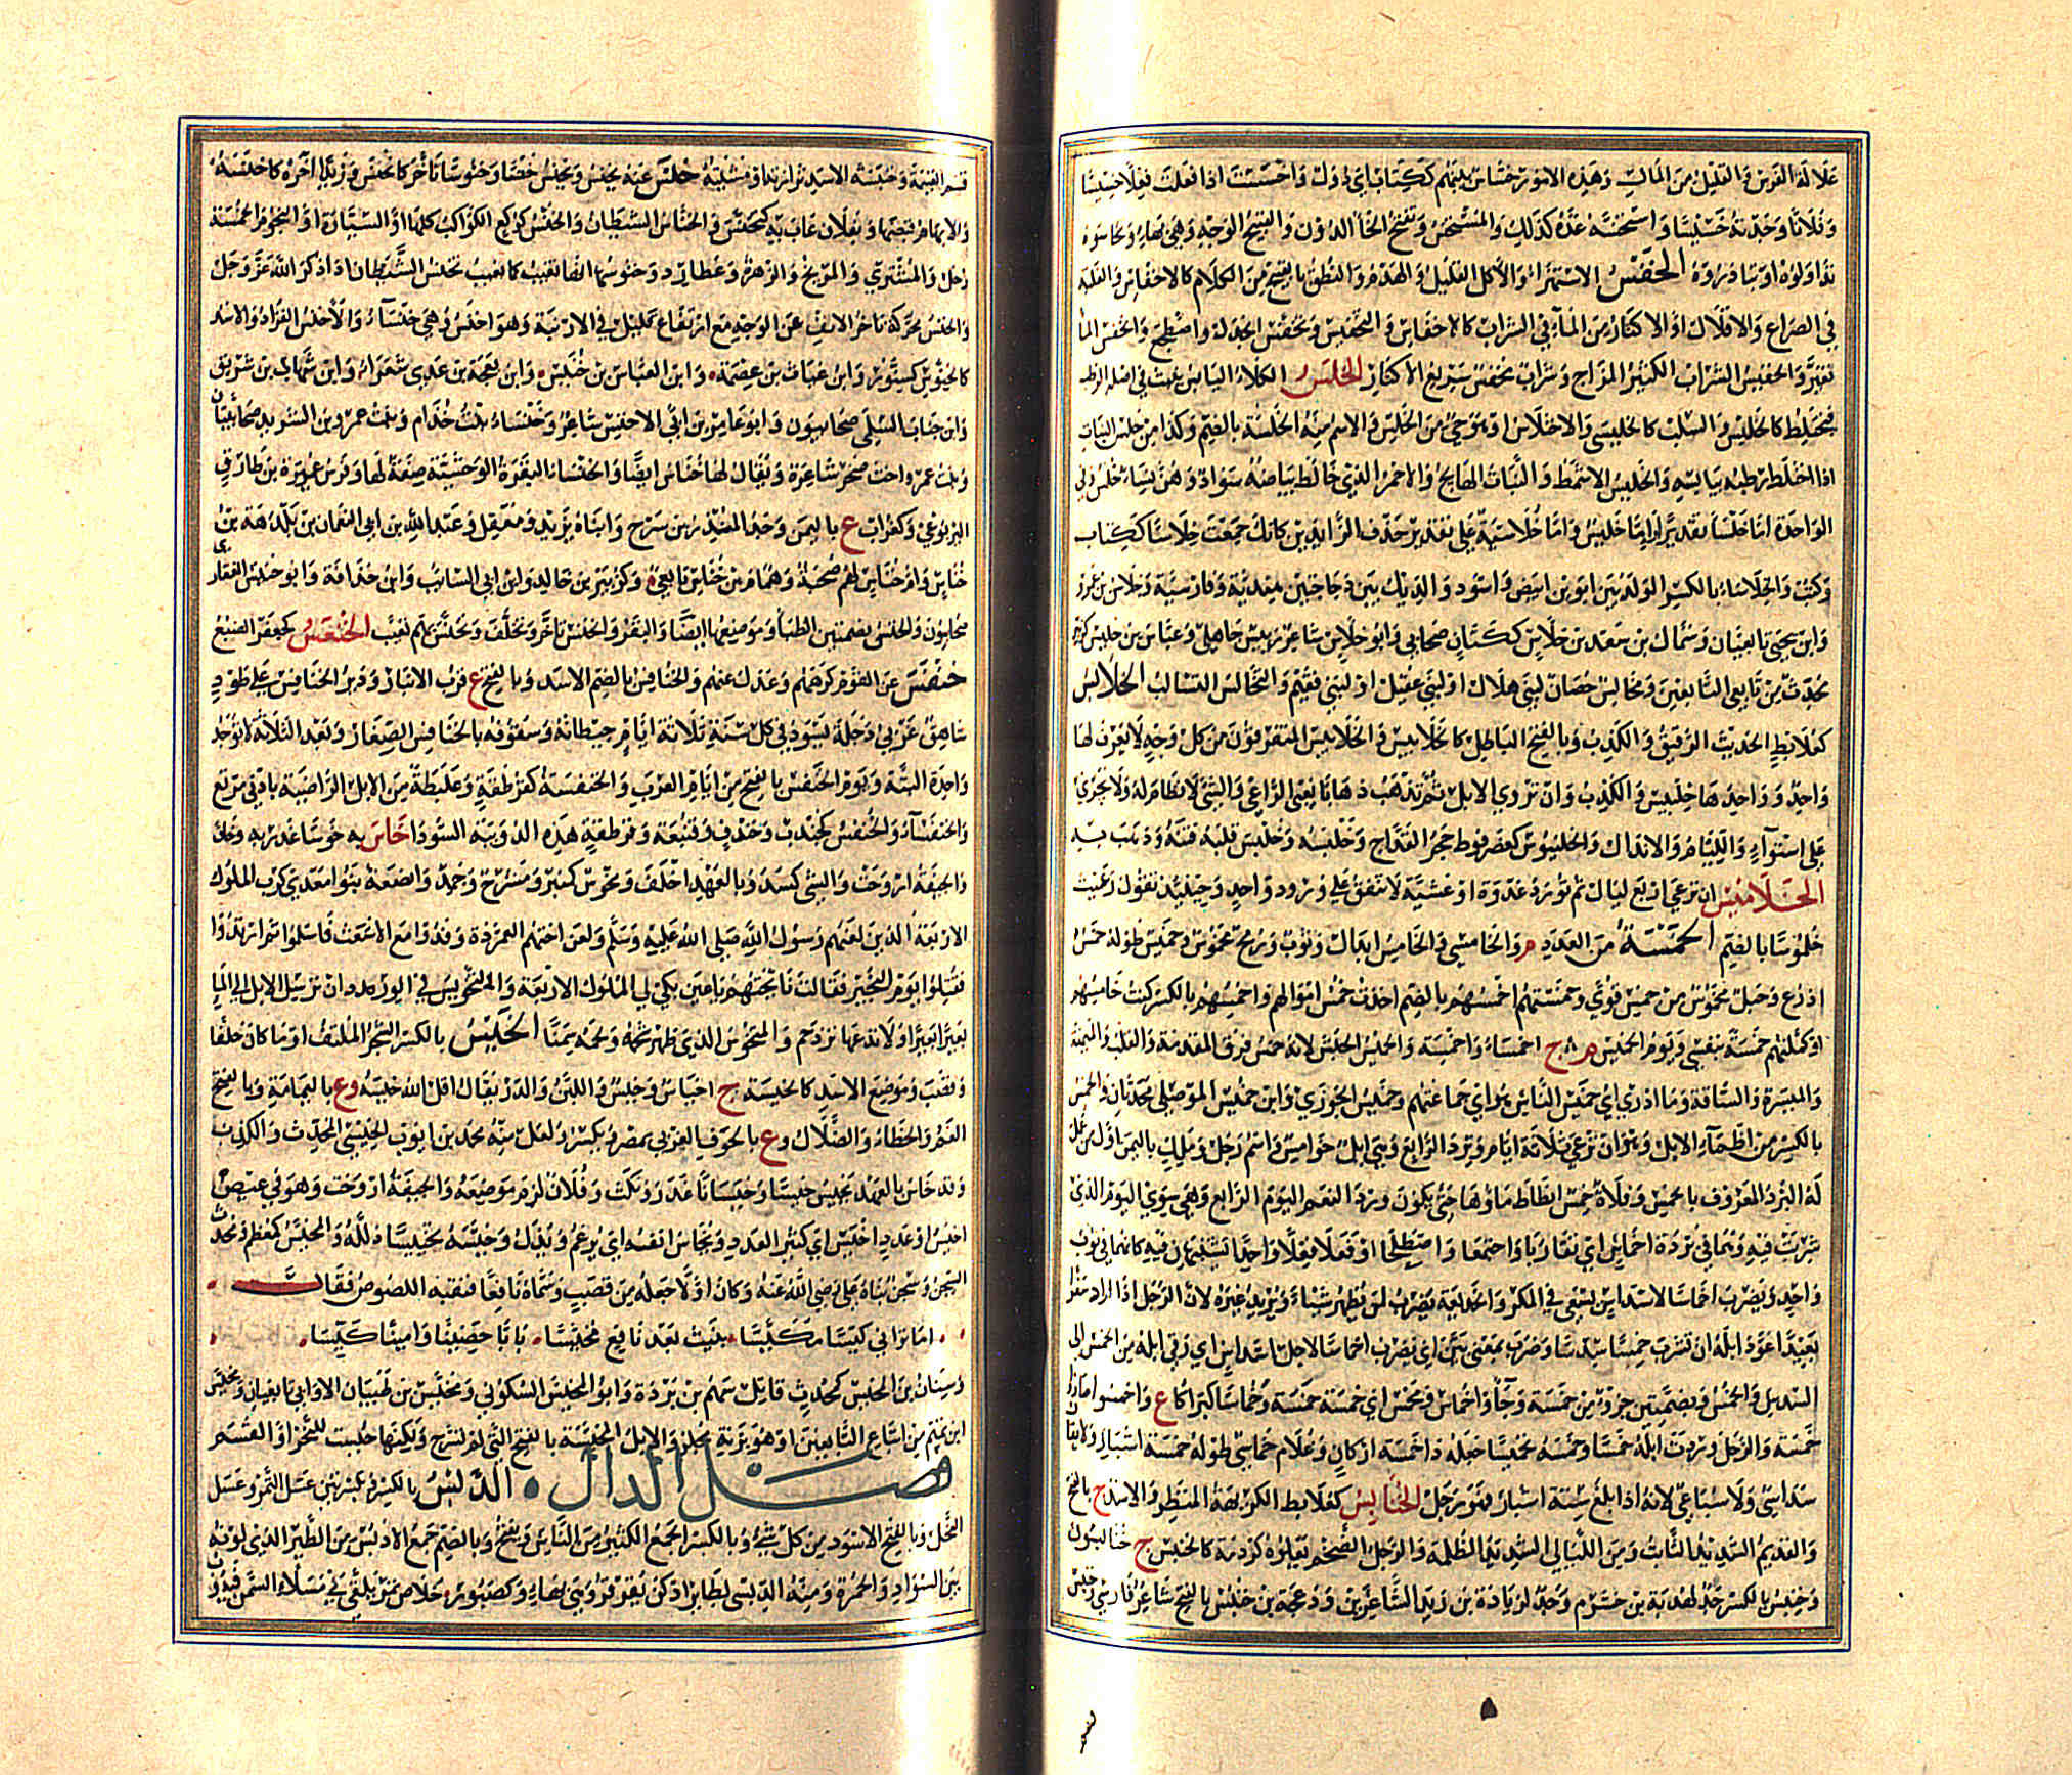 علالة الفرس والقليل من المال وهذه الامور خساس بينهم ككتاب اي دول واخسست اذا فعلت فعلا خسيسا
وفلانا وجدته خسيسا واستخسه عده كذلك والمستخس وتفتح الخا الدون والقبيح الوجه وهي بهاء وتخاسوه
تداولوه او تبادروه الخفس الاستهزاء والاكل القليل والهدم والنطق بالقبيح من الكلام كالاخفاس والغلبة
في الصراع والاقلال او الاكثار من الماء في الشراب كالاخفاس والتخفيس وتخفس انجدل واضطجع وانخفس الما
تغير والخفيس الشراب الكثير المزاج وشراب مخفس سريع الاسكار الخلس الكلاء اليابس نبت في اصله الرطب
فيختلط كالخليس والسلب كالخليسى والاختلاس او هو اوحى من الخلس والاسم منه الخلسة بالضم وكذا من اخلس النبات
اذا اختلط رطبه بيابسه والخليس الاشمط والنبات الهايج والاحمر الذي خالط بياضه سواد وهن نساء خلس وفي
الواحدة اما خلسا تقديرا واما خليس واما خلاسية على تقدير حذف الزايدين كانك جمعت خلاسا ككتاب
وكتب والخلاسي بالكسر الولد بين ابوين ابيض واسود والديك بين دجاجتين هندية وفارسية وخلاس بن عمرو
وابن يحيى تابعيان وسماك بن سعد بن خلاس ككتان صحابي وابو خلاس شاعر رييس جاهلي وعباس بن خليس كزبير
محدث من تابعي التابعين ومخالس حصان لبني هلال او لبني عقيل او لبني فقيم والتخالس التسالب الخلابس
كعلابط الحديث الرقيق والكذب وبالفتح الباطل كالخلابيس والخلابيس المتفرقون من كل وجه لا يعرف لها
واحد وواحدها خلبيس والكذب وان تروي الابل ثم تذهب ذهابا يعني الراعي والشي لا نظام له ولا يجري
على استواء والليام والانذال والخلنبوس كعضرفوط حجر القداح وخلبسه وخلبس قلبه فتنه وذهب به
الخلاميس ان ترعى اربع ليال ثم تورد غدوة او عشية لا تتفق على ورود واحد وحينيذ تقول رعيت
خلموسا بالضم الخمسة من العدد م والخامي والخامس ابدال وثوب ورمح مخموس وخميس طوله خمس
اذرع وحبل مخموس من خمس قوى وخمستهم اخمسهم بالضم اخذت خمس اموالهم واخمسهم بالكسر كنت خامسهم
او كملتهم خمسة بنفسي ويوم الخميس م ج اخمساء واخمسة والخميس الجيش لانه خمس فرق المقدمة والقلب والميمنة
والميسرة والساقة وما ادري اي خميس الناس هو اي جماعتهم وخميس الحوزي وابن خميس الموصلي محدثان والخمس
بالكسر من اظماء الابل وهو ان ترعى ثلاثة ايام وترد الرابع وهي ابل خوامس واسم رجل وملك باليمن اول من عمل
له البرد المعروف بالخمس وفلاة خمس انتاط ماؤها حتى يكون ورد النعم اليوم الرابع وهي سوى اليوم الذي
شربت فيه وهما في بردة اخماس اي تقاربا واجتمعا واصطلحا او فعلا فعلا واحدا تشبيها فيه كانهما في ثوب
واحد ويضرب اخماسا لاسداس يسعى في المكر والخديعة يضرب لمن يظهر شيا ويريد غيره لان الرجل اذا اراد سفرا
بعيدا عود ابله ان تشرب خمسا سدسا وضرب بمعنى بين اي يضرب اخماسا لاجل اسداس اي رقى ابله من الخمس الى
السدس والخمس وبضمتين جزو من خمسة وجاوا خماس ومخمس اي خمسة خمسة وخماساء كبراكاء ع واخمسوا صاروا
خمسة والرجل وردت ابله خمسا وخمسه تخميسا جعله ذا خمسة اركان وغلام خماسي طوله خمسة اشبار ولا يقال
سداسي ولا سباعي لانه اذا بلغ ستة اشبار فهو رجل الخنابس كعلابط الكريه المنظر والاسد ج بالفتح
والقديم الشديد الثابت ومن الليالي الشديد الظلمة والرجل الضخم تعلوه كردمة كالخنبس ج خنابسون
وخنبس بالكسر جد لهدبة بن خشرم وجد لزيادة بن زيد الشاعرين ودعجة بن خنبس بالفتح شاعر فارس وخنبس
قسم الغنيمة وخنبسة الاسد ترارته او مشيته خنس عنه يخنس ويخنس خنسا وخنوسا تاخر كانخنس وزيدا اخره كاخنسه
والابهام قبضها وبفلان غاب به كتخنس والخناس الشيطان والخنس كركع الكواكب كلها او السيارة او النجوم الخمسة
زحل والمشتري والمريخ والزهرة وعطارد وخنوسها انها تغيب كما يغيب تخنس الشيطان اذا ذكر الله عز وجل
والخنس محركة تاخر الانف عن الوجه مع ارتفاع قليل في الارنبة وهو اخنس وهي خنساء والاخنس القراد والاسد
كالخنوس كسنور وابن غياث بن عصمة وابن العباس بن خنيس وابن نعجة بن عدي شعراء وابن شهاب بن شريق
وابن جناب السلمي صحابيون وابو عامر بن ابي الاخنس شاعر وخنساء بنت خذام وبنت عمرو بن الشريد صحابيتان
وبنت عمرو اخت صخر شاعرة ويقال لها خناس ايضا والخنساء البقرة الوحشية صفة لها وفرس عميرة بن طارق
اليربوعي وكغراب ع باليمن وجد المنذر بن سرح وابناه يزيد ومعقل وعبد الله بن النعمان بن بلدمة بن
خناس وام خناس لهم صحبة وهمام بن خناس تابعي وكزبير بن خالد وابن ابي السايب وابن حذافة وابو خنيس الغفاري
صحابيون والخنس بضمتين الظبا وموضعها ايضا والبقر وانخنس تاخر وتخلف وتخنس بهم تغيب الخنعس كجعفر الضبع
خنفس عن القوم كرههم وعدل عنهم والخنافس بالضم الاسد وبالفتح ع قرب الانبار ودير الخنافس على طود
شاهق غربي دجلة تسود في كل سنة ثلاثة ايام حيطانه وسقوفه بالخنافس الصغار وبعد الثلاثة لا توجد
واحدة البتة ويوم الخنفس بالفتح من ايام العرب والخنفسة كقرطقة وعلبطة من الابل الراضية بادنى مرتع
والخنفساء والخنفس كجندب وخندف وقنبعة وقرطقة هذه الدويبة السودا خاس به خوسا غدر به وخان
والجيفة اروحت والشي كسد وبالعهد اخلف ومخوس كمنبر ومشرح وجمد وابضعة بنو معدي كرب الملوك
الاربعة الذين لعنهم رسول الله صلى الله عليه وسلم ولعن اختهم العمردة وفدوا مع الاشعث فاسلموا ثم ارتدوا
فقتلوا يوم النجير فقالت نايحتهم يا عين بكي لي الملوك الاربعة والتخويس في الورد ان ترسل الابل الى الما
بعيرا بعيرا ولا تدعها تزدحم والمتخوس الذي ظهر شحمه ولحمه سمنا الخيس بالكسر الشجر الملتف او ما كان حلفا
وقصبا وموضع الاسد كالخيسة ج اخياس وخيس واللبن والدر يقال اقل الله خيسه وع باليمامة وبالفتح
الغم والخطا والضلال وع بالحوف الغربي بمصر ويكسر ولعل منه محمد بن ايوب الخيسي المحدث والكذب
وقد خاس بالعهد يخيس خيسا وخيسانا غدر ونكث وفلان لزم موضعه والجيفة اروحت وهو في عيص
اخيس او عدد اخيس اي كثير العدد ويخاس انفه اي يرغم ويذل وخيسه تخييسا ذلله والمخيس كمعظم ومحدث
السجن وسجن بناه علي رضي الله عنه وكان اولا جعله من قصب وسماه نافعا فنقبه اللصوص فقال
اما تراني كيسا مكيسا بنيت بعد نافع مخيسا بابا حصينا وامينا كيسا
وسنان بن المخيس كمحدث قاتل سهم بن بردة وابو المخيس السكوني ومخيس بن ظبيان الاوابي تابعيان ومخيس
ابن تميم من اتباع التابعين او هو بزنة مجلز والابل المخيسة بالفتح التي لم تسرح ولكنها حبست للنحر او القسم
فصل الدال الدبس بالكسر وبكسرتين عسل التمر وعسل
النحل وبالفتح الاسود من كل شي وبالكسر الجمع الكثير من الناس ويفتح وبالضم جمع الادبس من الطير الذي لونه
بين السواد والحمرة ومنه الدبسي لطاير ادكن يقرقر وهي بهاء وكصبور خلاص تمر يلقى في مسلاء السمن فيذوب